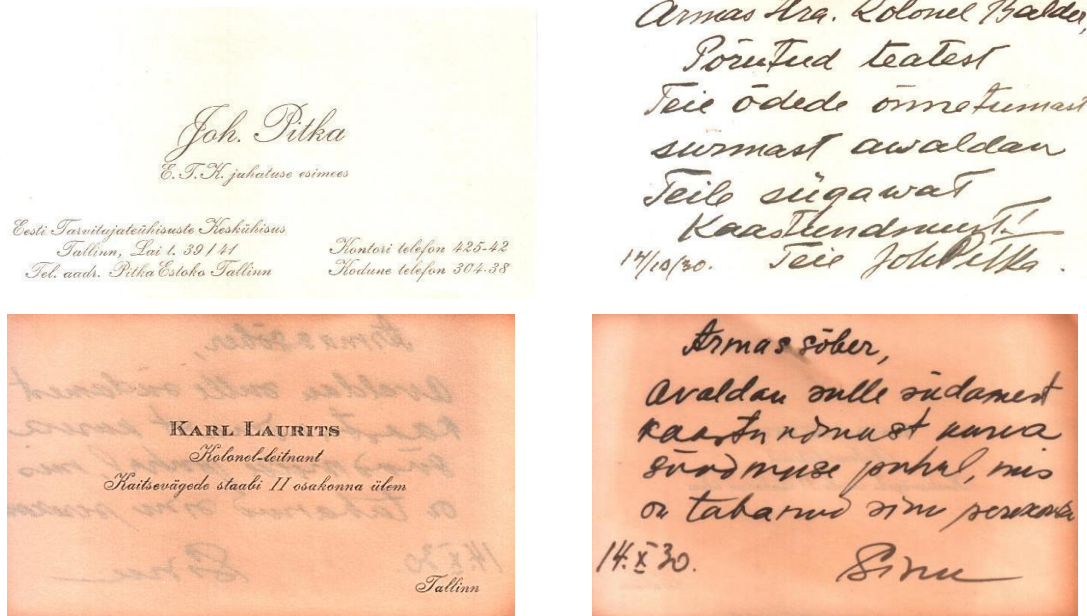 Joh. Pitka
E.T.K. juhatuse esimees
Eesti Tarvitajateühisuste Keskühisus
Tallinn, Lai t. 39/41
Tel. aadr. Pitka Estoko Tallinn
Kontori telefon 425-42
Kodune telefon 304-38
Armas Hra. Kolonel Balder,
Põrutud teatest
Teie õdede õnnetumast
surmast awaldan
Teile sügawat
Kaastundmust!
14/10/30. Teie Joh Pitka.
KARL LAURITS
Kolonel-leitnant
Kaitsevägede staabi II osakonna ülem
Tallinn
Armas sõber,
Avaldan sulle südamest
kaastundmust kurva
sündmuse puhul, mis
on tabanud sinu perekonda
14.X 30. Sinu